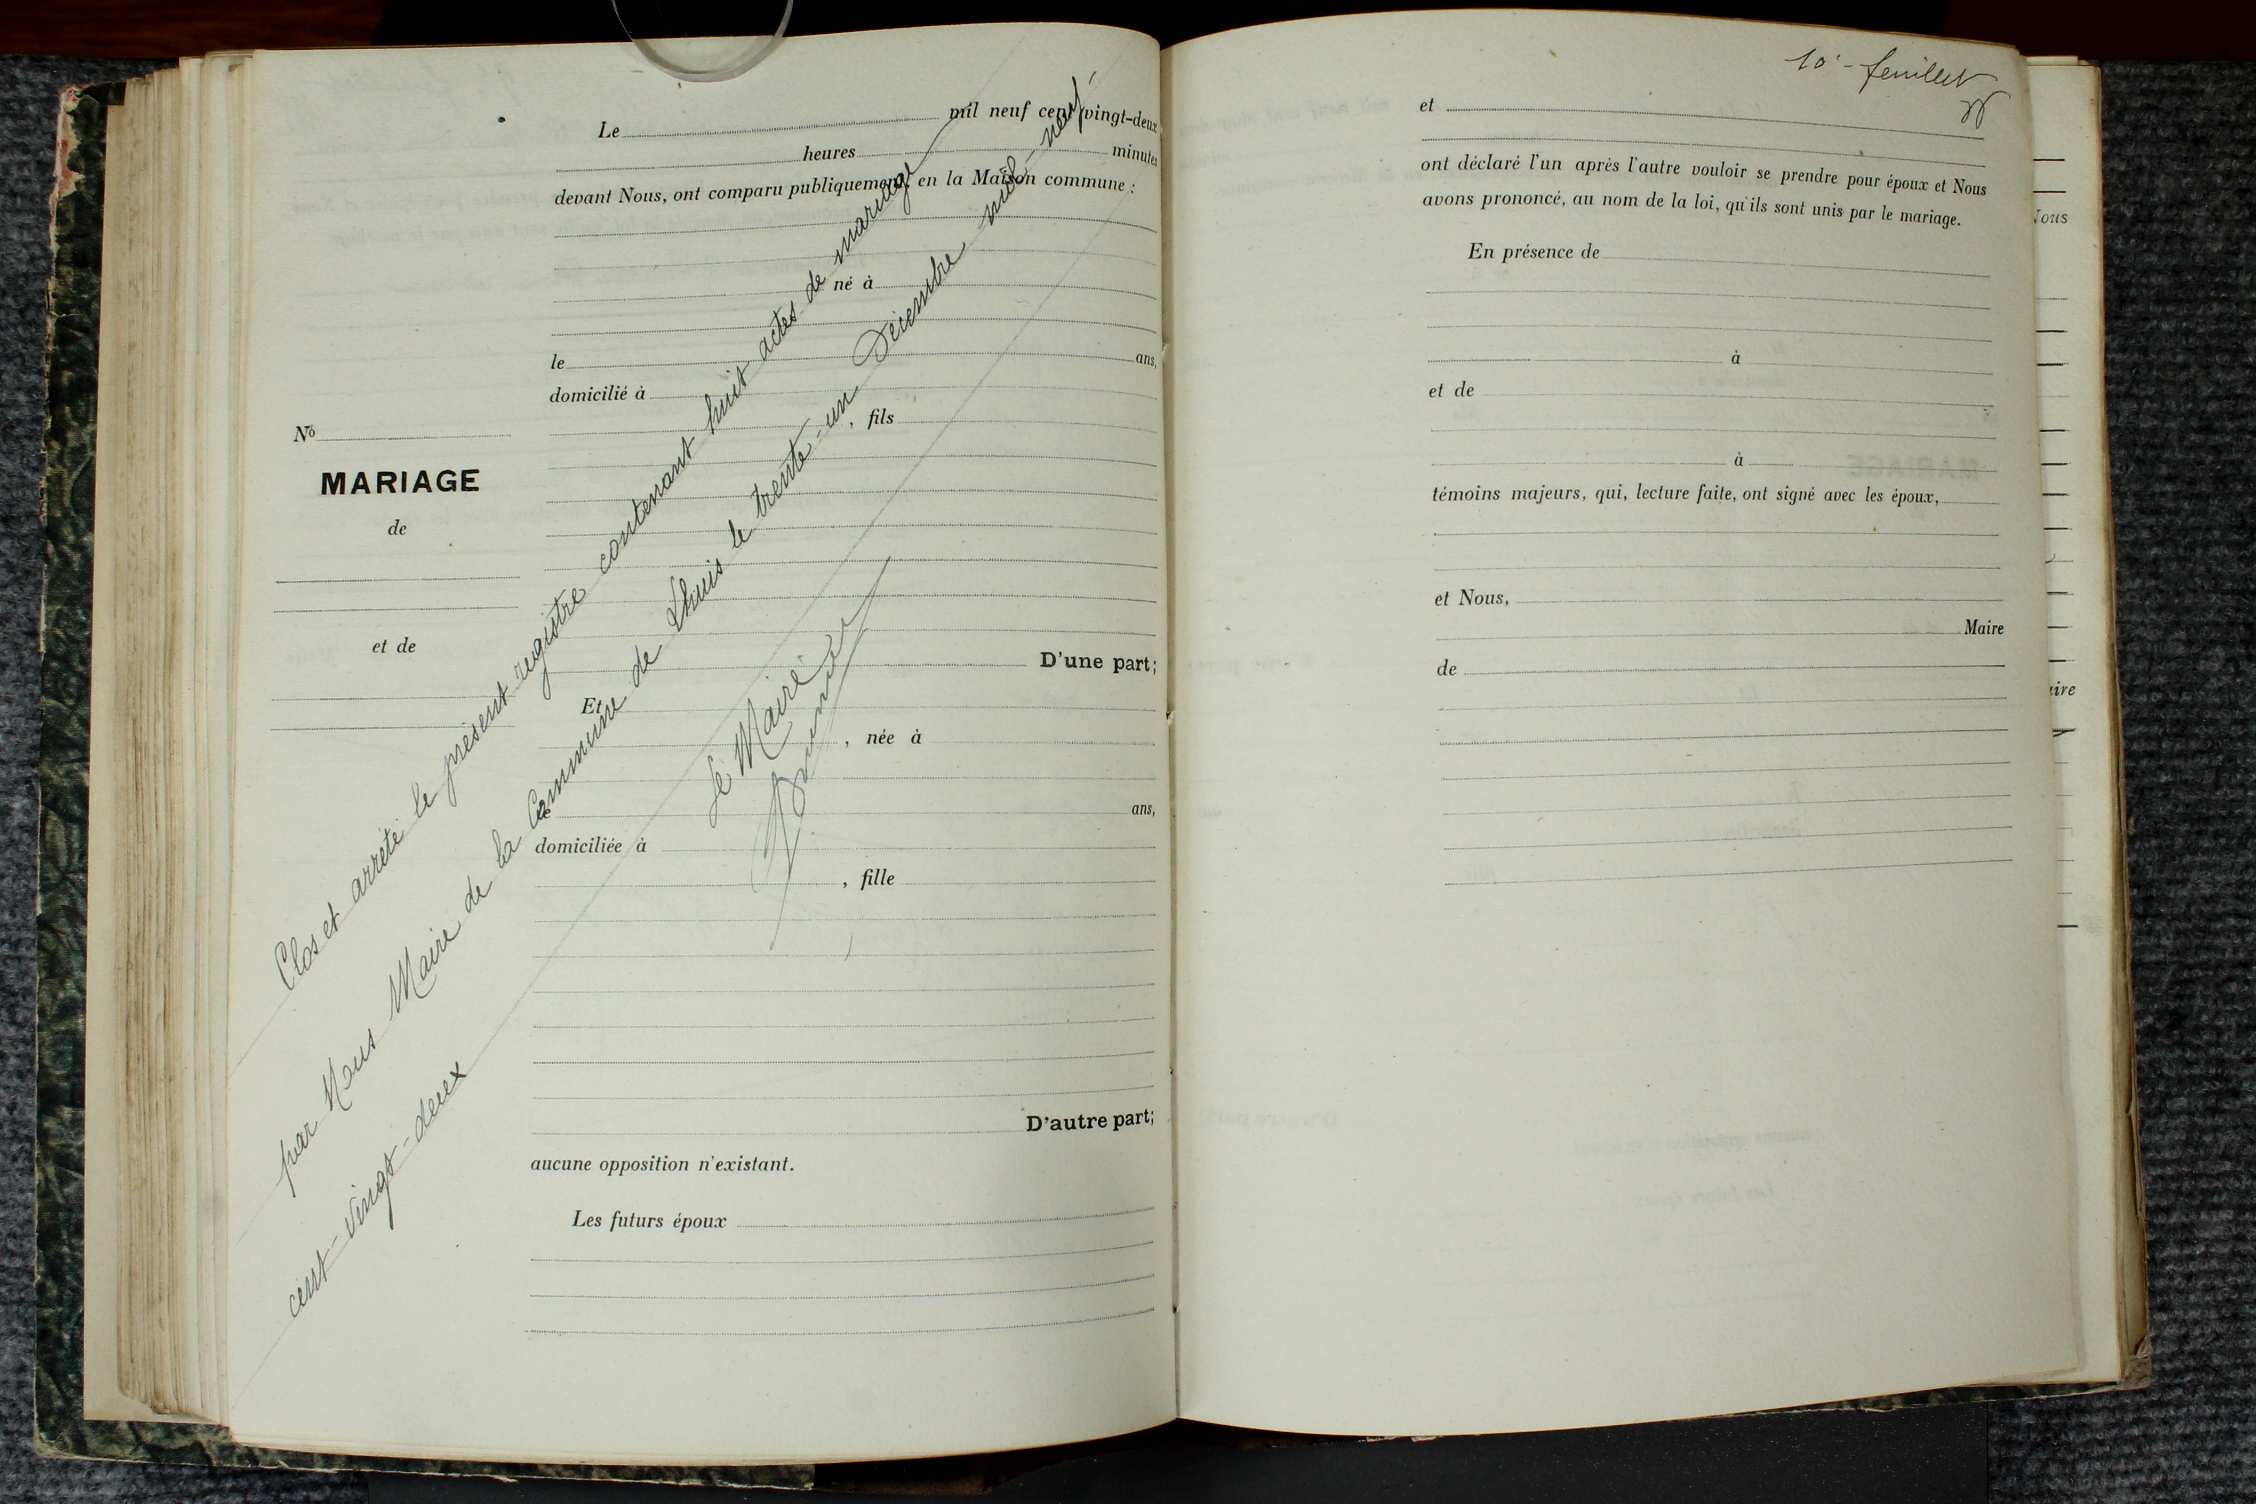 Le mil neuf cent vingt-deux
heures minutes
devant Nous, ont comparu publiquement en la Maison commune :
né à
le ans,
domicilié à
, fils
No
MARIAGE
de
et de
D'une part;
Et
, née à
le ans,
domiciliée à
, fille
D'autre part;
aucune opposition n'existant.
Les futurs époux
Clos et arrêté le présent registre contenant huit actes de mariage
par Nous Maire de la Commune de Lhuis le trente-un Décembre mil-neuf
cent-vingt-deux
le Maire
10e - feuillet
et
ont déclaré l'un après l'autre vouloir se prendre pour époux et Nous
avons prononcé, au nom de la loi, qu'ils sont unis par le mariage.
En présence de
à
et de
à
témoins majeurs, qui, lecture faite, ont signé avec les époux,
et Nous,
Maire
de